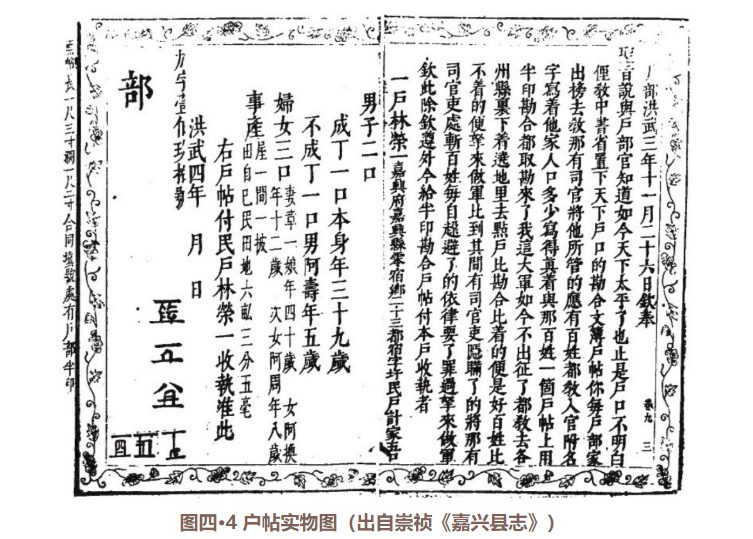 戶部洪武三年十一月二十六日欽奉
卷九 三
聖旨說與戶部官知道如今天下太平了也止是戶口不明白
俚教中書省置下天下戶口的勘合文簿戶帖你每戶部家
出榜去教那有司官將他所管的應有百姓都教入官附名
字寫着他家人口多少寫得真着與那百姓一箇戶帖上用
半印勘合都取勘來了我這大軍如今不出征了都教去各
州縣裏下着遶地里去點戶比勘合比着的便是好百姓比
不着的便拏來做軍比到其間有司官吏隱瞞了的將那有
司官吏處斬百姓每自趓避了的依律要了罪過拏來做軍
欽此除欽遵外今給半印勘合戶帖付本戶收執者
一戶林榮一嘉興府嘉興縣零宿鄉二十三都宿字圩民戶計家五口
男子二口
成丁一口本身年三十九歲
不成丁一口男阿壽年五歲
婦女三口妻章一娘年四十歲 女阿換
年十二歲 次女阿周年八歲
事產屋一間一披
田自己民田地六畝三分五毫
右戶帖付民戶林榮一收執准此
洪武四年 月 日
部
帖長一尺三寸濶一尺二寸合同填號處有戶部半印
图四•4 户帖实物图（出自崇祯《嘉兴县志》）